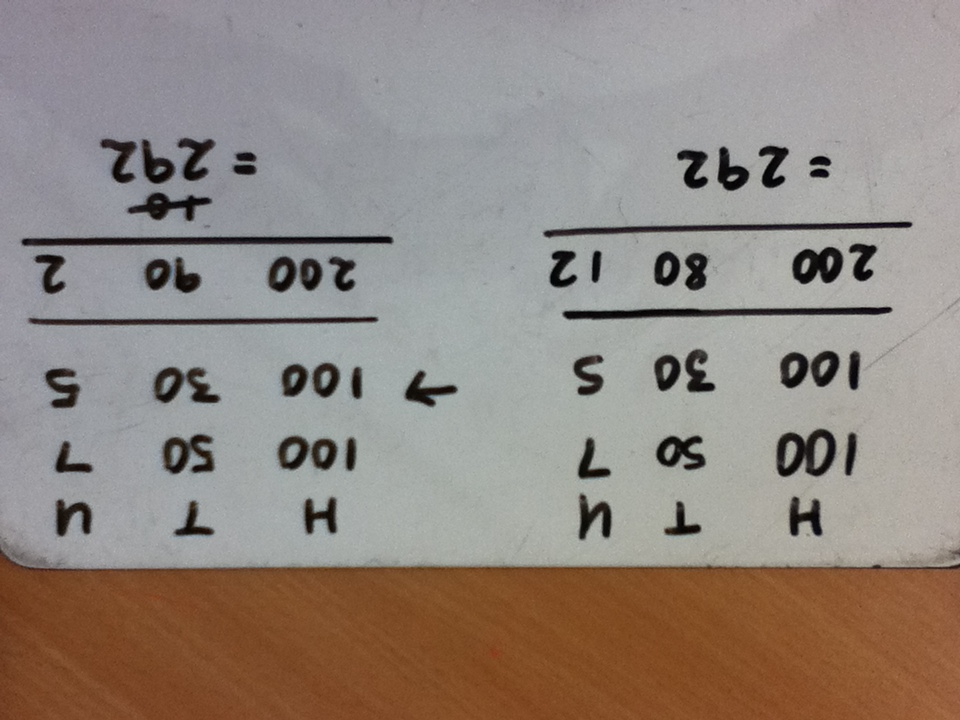 H T U
100 50 7
100 30 5
200 80 12
= 292
→
H T U
100 50 7
100 30 5
200 90 2
10
= 292